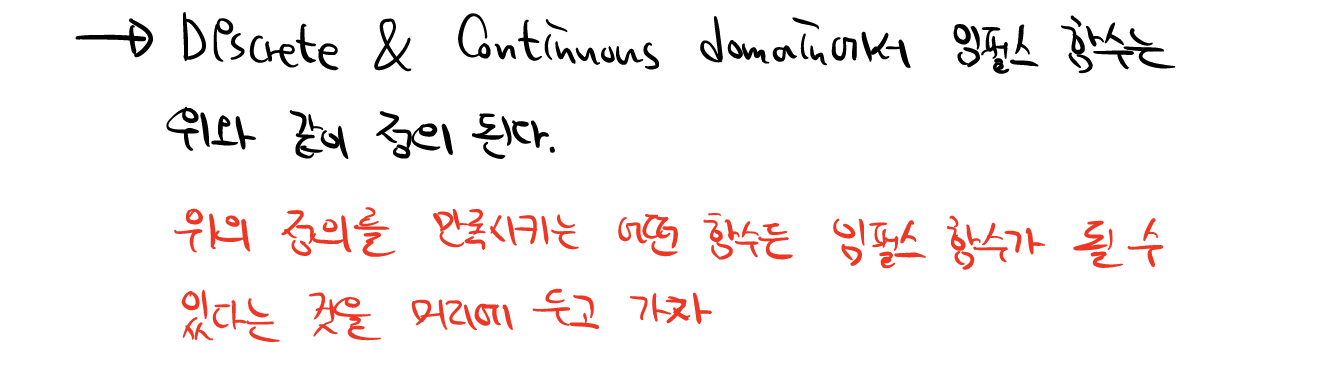 → Discrete & Continuous domain에서 임펄스 함수는
위와 같이 정의 된다.
위의 정의를 만족시키는 어떤 함수든 임펄스 함수가 될 수
있다는 것을 머리에 두고 가자